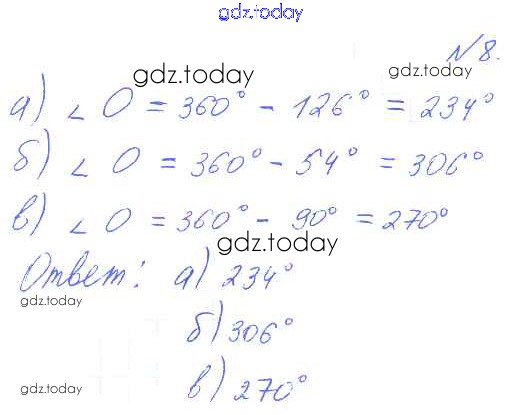 gdz.today
№8.
gdz.today gdz.today
а) ∠ O = 360° - 126° = 234°
б) ∠ O = 360° - 54° = 306°
в) ∠ O = 360° - 90° = 270°
gdz.today
Ответ: а) 234°
gdz.today
б) 306°
gdz.today
в) 270°